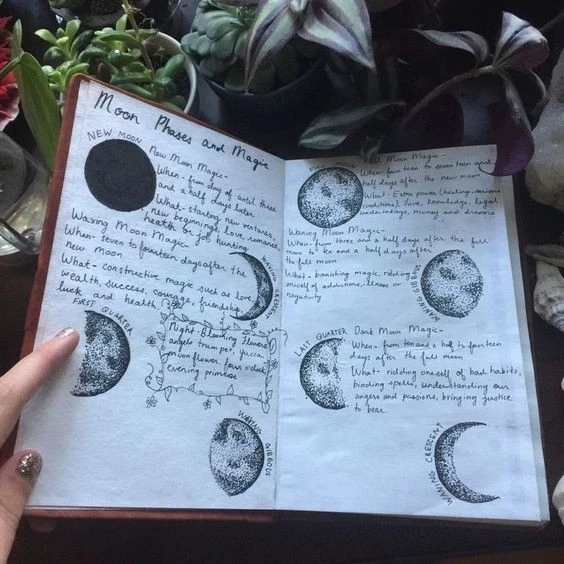 Moon Phases and Magic
NEW MOON
New Moon Magic-
When- from day of until three
and a half days later
What- starting new ventures,
new beginnings, love, romance,
health or job hunting
Waxing Moon Magic
When- seven to fourteen days after the
new moon
What- constructive magic such as love,
wealth, success, courage, friendship
luck, and health
WAXING CRESCENT
FIRST QUARTER
Night-Blooming Flowers
angels trumpet, yucca
moon flower, four o'clock
evening primrose
WAXING GIBBOUS
FULL MOON
Full Moon Magic-
When- fourteen to seventeen and
half days after the new moon
What- Extra power (healing, serious
conditions), love, knowledge, legal
undertakings, money and dreams
Waning Moon Magic-
When- from three and a half days after the full
moon to ten and a half days after
the full moon
What- banishing magic, ridding
oneself of addictions, illness or
negativity
WANING GIBBOUS
LAST QUARTER
Dark Moon Magic-
When- from ten and a half to fourteen
days after the full moon
What- ridding oneself of bad habits,
binding spells, understanding our
angers and passions, bringing justice
to bear
WANING CRESCENT